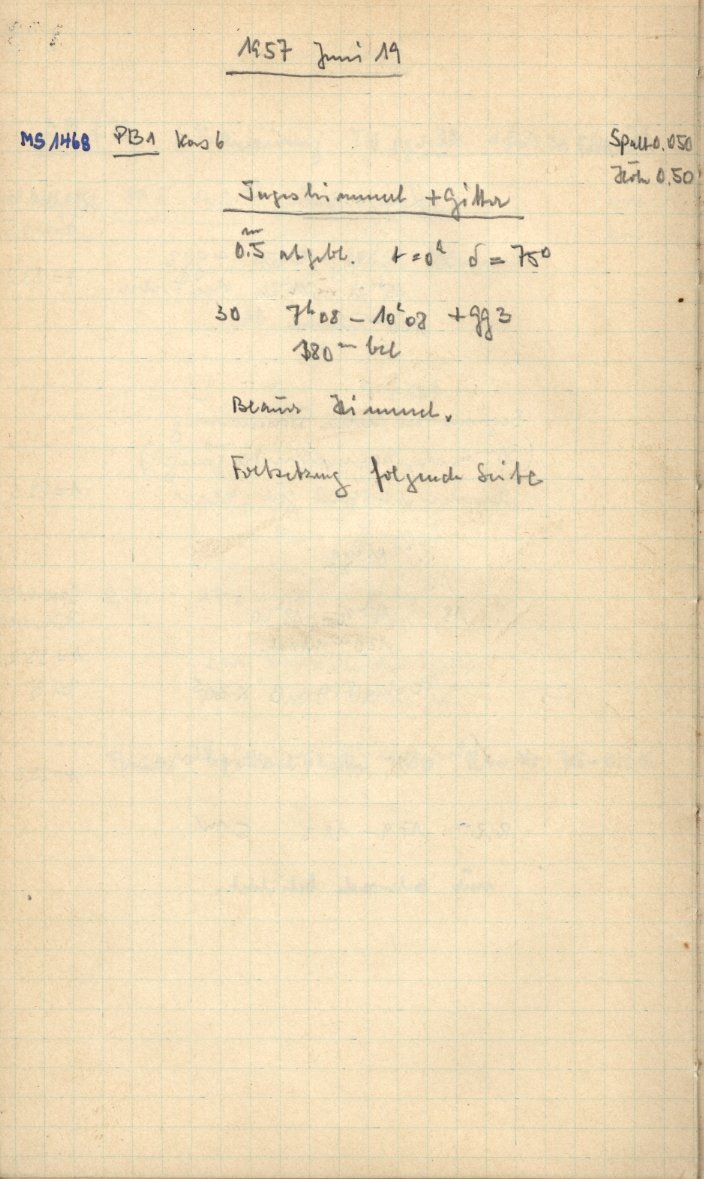 1957 Juni 19
MS 1468 PB1 Kas 6 Spalt 0.050
Höhe 0.50
Tageshimmel + Gitter
0.5 m abgebl. t = 0h δ = 75°
30 7h08 – 10h08 + gg3
180m bel
Blauer Himmel.
Fortsetzung folgende Seite